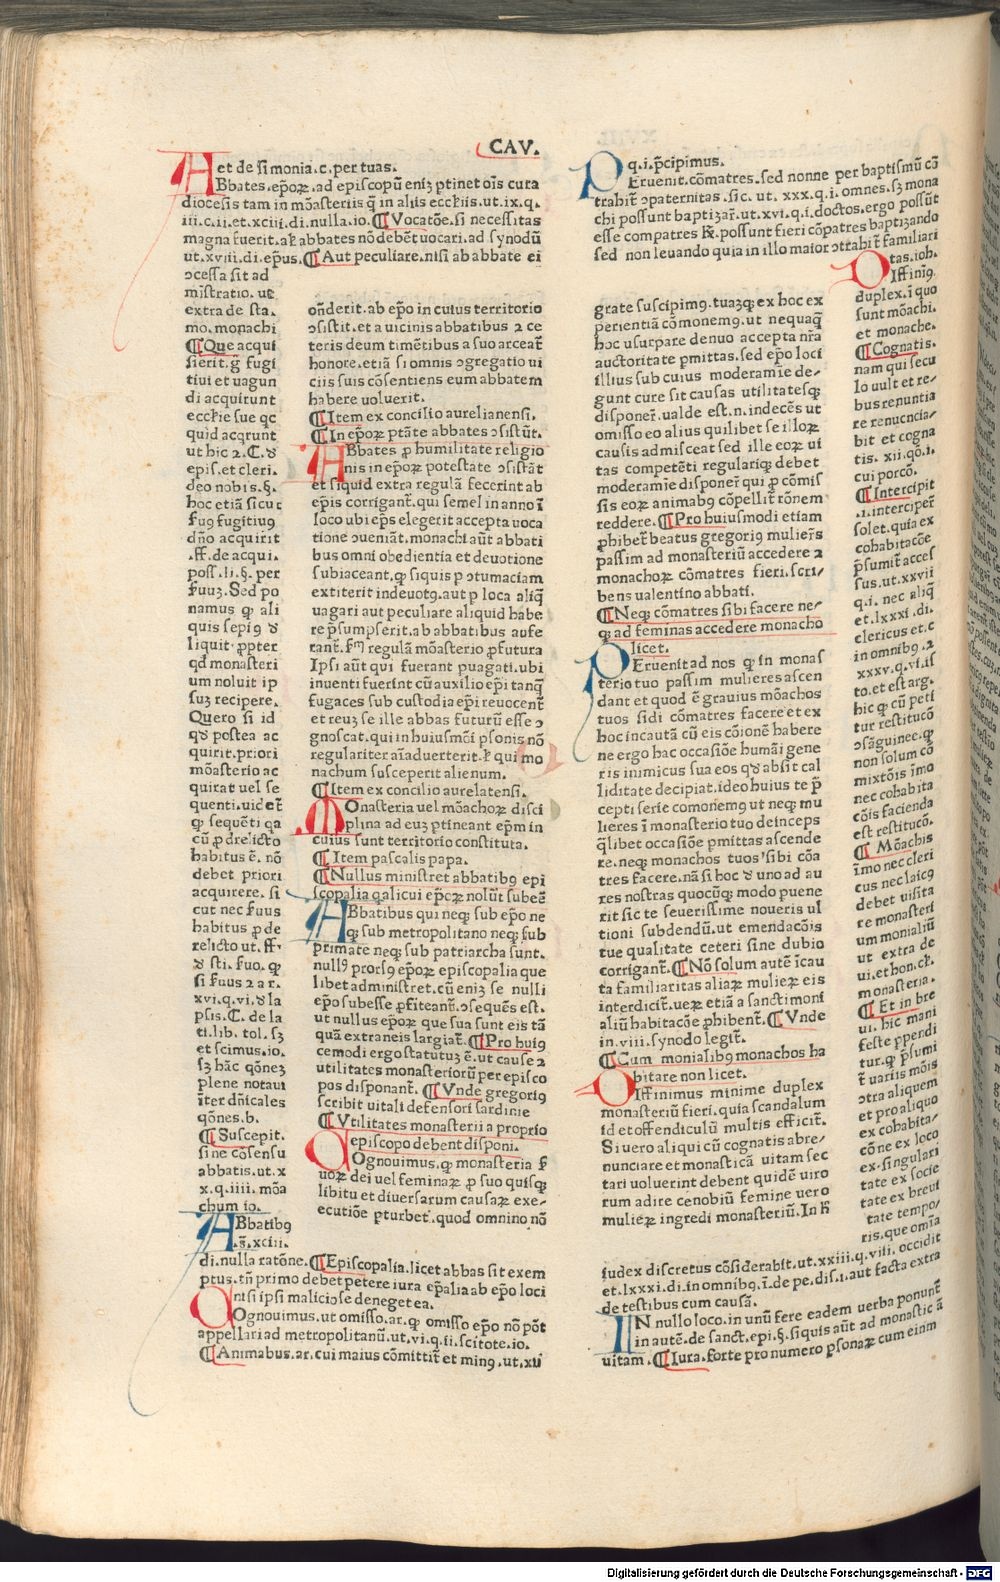 CAV.
et de simonia.c.per tuas.
ABbates.ep̄oꝝ.ad episcopū eniꝫ ptinet oīs cura
diocesis tam in mōasteriis q̄ in aliis eccliis.ut.ix.q.
iii.c.ii.et.xciii.di.nulla.io.¶Vocatōe.si necessitas
magna fuerit.al' abbates nō debēt uocari.ad synodū
ut.xviii.di.ep̄us.¶Aut peculiare.nisi ab abbate ei
ɔcessa sit ad
mistratio.ut
extra de sta.
mo.monachi
¶Que acqui
sierit.ḡ fugi
tiui et uagun
di acquirunt
ecclie sue qc
quid acqrunt
ut hic ⁊.C.ꝺ
epis.et cleri.
deo nobis.§.
hoc etiā sicut
fuꝯ fugitiuꝯ
dn̄o acquirit
.ff.de acqui.
poss.li.§.per
f̄uuꝫ.Sed po
namus ꝙ ali
quis sepiꝯ ꝺ
liquit.ꝓpter
qd monasteri
um noluit ip
suꝫ recipere.
Quero si id
qꝺ postea ac
quirit.priori
mōasterio ac
quirat uel se
quenti.uidet̄
ꝙ sequēti qa
cū ꝓ drelicto
habitus ē.nō
debet priori
acquirere.si
cut nec f̄uus
habitus ꝓ de
relicto ut.ff.
ꝺ sti.fuo.ꝙ
si f̄uus ⁊ ar.
xvi.q.vi.ꝺ la
psis.C.de la
ti.lib.tol.sꝫ
et scimus.io.
sꝫ hāc qōneꝫ
plene notaui
īter dn̄icales
qōnes.b.
¶Suscepit.
sine cōsensu
abbatis.ut.x
x.q.iiii.mōa
chum io.
ABbatibꝯ
.s̄.xciii.
di.nulla ratōne.¶Episcopalia.licet abbas sit exem
ptus.tn̄ primo debet petere iura ep̄alia ab ep̄o loci
nisi ipsi maliciose deneget ea.
COgnouimus.ut omisso.ar.ꝙ omisso ep̄o nō pōt
appellari ad metropolitanū.ut.vi.q.ii.scitote.io.
¶Animabus.ar.cui maius cōmittit̄ et minꝯ.ut.xii
ōnderit.ab ep̄o in cuius territorio
ɔsistit.et a uicinis abbatibus ⁊ ce
teris deum timētibus a suo arceat̄
honore.etiā si omnis ɔgregatio ui
ciis suis cōsentiens eum abbatem
habere uoluerit.
¶Item ex concilio aurelianensi.
¶In ep̄oꝝ ptāte abbates ɔsistūt.
ABbates ꝓ humilitate religio
nis in ep̄oꝝ potestate ɔsistāt
et siquid extra regulā fecerint ab
ep̄is corrigant̄.qui semel in anno ī
loco ubi ep̄s elegerit accepta uoca
tione ɔueniāt.monachi aūt abbati
bus omni obedientia et deuotione
subiaceant.ꝙ siquis p ɔtumaciam
extiterit indeuotꝯ.aut p loca aliq̄
uagari aut peculiare aliquid habe
re p̄sumpserit.ab abbatibus aufe
rant̄.fm̄ regulā mōasterio ꝓfutura
Ipsi aūt qui fuerant puagati.ubi
inuenti fuerīnt cū auxilio ep̄i tanq̄
fugaces sub custodia ep̄i reuocent̄
et reuꝫ se ille abbas futurū esse ɔ
gnoscat.qui in huiusmōi psonis nō
regulariter aīaduerterit.l' qui mo
nachum susceperit alienum.
¶Item ex concilio aurelatensi.
MOnasteria uel mōachoꝝ disci
plina ad euꝫ ptineant ep̄m in
cuius sunt territorio constituta.
¶Item pascalis papa.
¶Nullus ministret abbatibꝯ epi
scopalia q alicui ep̄oꝝ nolūt subeē
ABbatibus qui neqꝫ sub ep̄o ne
qꝫ sub metropolitano neqꝫ sub
primate neqꝫ sub patriarcha sunt.
nullꝯ prorsꝯ ep̄oꝝ episcopalia que
libet administret.cū eniꝫ se nulli
ep̄o subesse ꝓfiteant̄.ɔsequēs est.
ut nullus ep̄oꝝ que sua sunt eis tā
quā extraneis largiat̄.¶Pro huiꝯ
cemodi ergo statutuꝫ ē.ut cause ⁊
utilitates monasteriorū per episco
pos disponant̄.¶Vnde gregoriꝯ
scribit uitali defensori sardinie
¶Vtilitates monasterii a proprio
episcopo debent disponi.
COgnouimus.ꝙ monasteria f̄
uoꝝ dei uel feminaꝝ ꝓ suo quisqꝫ
libitu et diuersarum causaꝝ exe-
cutiōe pturbet̄.quod omnino nō
q.i.p̄cipimus.
PEruenit.cōmatres.sed nonne per baptismū cō
trahit̄ ɔpaternitas.sic.ut.xxx.q.i.omnes.sꝫ mona
chi possunt baptizar̄.ut.xvi.q.i.doctos.ergo possūt
esse compatres l'x.possunt fieri cōpatres baptizando
sed non leuando quia in illo maior ɔtrahit̄ familiari
tas.ioh.
DIffiniꝯ
duplex.ī quo
sunt mōachi.
et monache.
¶Cognatis.
nam qui secu
lo uult et re-
bus renuntia
re renuncia-
bit et cogna
tis.xii.qō.i.
cui porcō.
¶Intercipit
.i.interciper̄
solet.quia ex
cohabitacōe
p̄sumit̄ acces
sus.ut.xxvii
q.i.nec aliq̄
et.lxxxi.di.
clericus et.c
in omnibꝯ.⁊
xxxv.q.vi.is
to.et est arg.
hic ꝙ cū peti
tur restitucō
ɔsāguinee.ꝙ
non solum cō
mixtōis īmo
nec cohabita
cōis facienda
est restitucō.
¶Mōachis
īmo nec cleri
cus nec laicꝯ
debet uisita
re monasteri
um monialiū
ut extra de
ui.et hon.cl'.
monasteria.
¶Et in bre
ui.hic mani
feste ꝓpendi
tur.ꝙ p̄sumi
t̄ uariis mōis
ɔtra aliquem
et pro aliquo
ex cohabita-
cōne ex loco
ex.singulari
tate ex socie
tate ex breui
tate tempo-
ris.que omīa
grate suscipimꝯ.tuaꝫqꝫ ex hoc ex
perientiā cōmonemꝯ.ut nequaq̄
hoc usurpare denuo accepta nr̄a
auctoritate pmittas.sed ep̄o loci
illius sub cuius moderamīe de-
gunt cure sit causas utilitatesqꝫ
disponer̄.ualde est.n.indecēs ut
omisso eo alius quilibet se illoꝝ
causis admisceat sed ille eoꝝ ui
tas competēti regulariqꝫ debet
moderamīe disponer̄ qui ꝓ cōmis
sis eoꝝ animabꝯ cōpellit̄ rōnem
reddere.¶Pro huiusmodi etiam
ꝓhibet̄ beatus gregoriꝯ mulier̄s
passim ad monasteriū accedere ⁊
monachoꝝ cōmatres fieri.scri-
bens ualentino abbati.
¶Neqꝫ cōmatres sibi facere ne-
qꝫ ad feminas accedere monacho
licet.
PEruenit ad nos ꝙ in monas
terio tuo passim mulieres ascen
dant et quod ē grauius mōachos
tuos sidi cōmatres facere et ex
hoc incautā cū eis cōionē habere
ne ergo hac occasiōe humāi gene
ris inimicus sua eos qꝺ absit cal
liditate decipiat.ideo huius te p̄
cepti serie comonemꝯ ut neqꝫ mu
lieres ī monasterio tuo deinceps
q̄libet occasiōe pmittas ascende
re.neqꝫ monachos tuos'sibi cōa
tres facere.nā si hoc ꝺ uno ad au
res nostras quocūqꝫ modo puene
rit sic te seuerissime noueris ul
tioni subdendū.ut emendacōis
tue qualitate ceteri sine dubio
corrigant̄.¶Nō solum autē īcau
ta familiaritas aliaꝝ mulieꝝ eis
interdicit̄.ueꝝ etiā a sanctimoni
aliū habitacōe ꝓhibent̄.¶Vnde
in.viii.synodo legit̄.
¶Cum monialibꝯ monachos ha
bitare non licet.
DIffinimus minime duplex
monasteriū fieri.quia scandalum
id et offendiculū multis efficit̄.
Si uero aliqui cū cognatis abre-
nunciare et monasticā uitam sec
tari uoluerint debent quidē uiro
rum adire cenobiū femine uero
mulieꝝ ingredi monasteriū.In h̄
iudex discretus cōsiderabit.ut.xxiii.q.viii.occidit
et.lxxxi.di.in omnibꝯ.ī.de pe.dis.i.aut facta extra
de testibus cum causā.
IN nullo loco.in unū fere eadem uerba ponunt̄
in autē.de sanct.epi.§.siquis aūt ad monastic ā
uitam.¶Iura.forte pro numero psonaꝝ cum enim
Digitalisierung gefördert durch die Deutsche Forschungsgemeinschaft - DFG